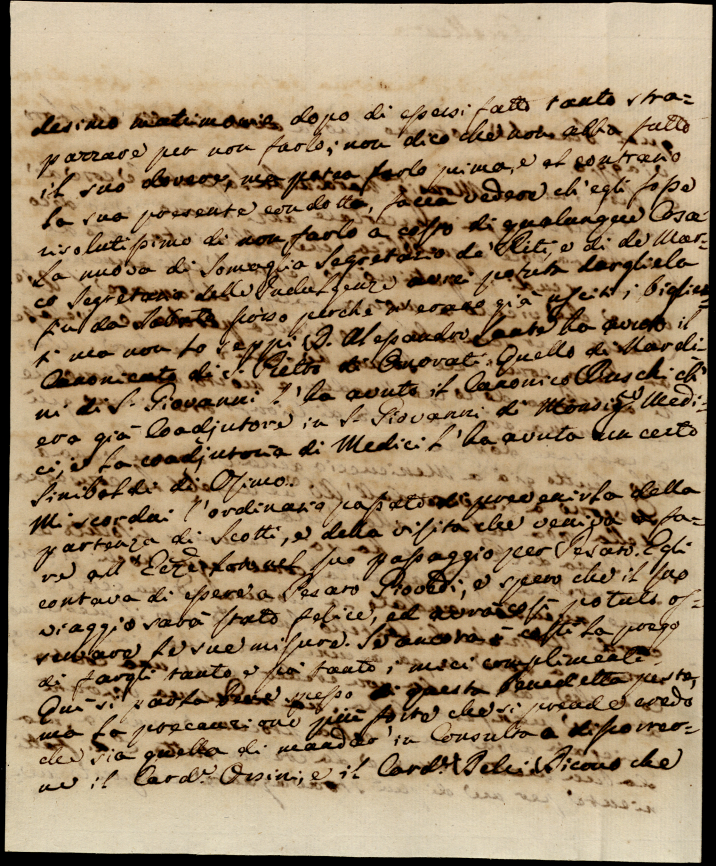 desimo matrimonio dopo di essersi fatto tanto stra=
pazzare per non farlo; non dico che non abbia fatto
il suo dovere, ma potea farlo prima, e al contrario
la sua presente condotta, faccia vedere ch'egli fosse
risolutissimo di non farlo a costo di qualunque Cosa.
La nuova di Somaglia Segretario de' Riti, e di de Mar=
co Segretario delle Indulgenze avrei potuta dargliela
fin da Sabato scorso perche n'erano già usciti i bigliet=
ti ma non lo seppi. D. Alessandro Lante ha avuto il
Canonicato di S. Pietro di Onorati. Quello di Nardi=
ni di S. Giovanni l'ha avuto il Canonico Buschi ch'
era già Coadjutore in S. Giovanni di Monsig.r Medi=
ci, e la coadjutoria di Medici l'ha avuta un certo
Sinibaldi di Osimo.
Mi scordai l'ordinario passato di prevenirla della
partenza di Scotti, e della visita che veniva a fa=
re all' suo passaggio per Pesaro. Egli
contava di essere a Pesaro Giovedì, e spero che il suo
viaggio sarà stato felice, ed avrà così potuto os=
servare le sue misure. Se ancora è costì la prego
di fargli tanto, e poi tanto i miei complimenti.
Quì si parla bene spesso di questa benedetta peste,
ma la precauzione più forte che si prende credo
che sia quella di mandar' in Consulta a discorrer=
ne il Card.e Orsini, e il Card.e Dicono che